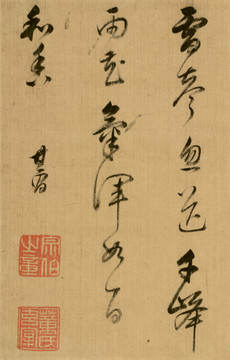 雷聲忽送千峰
雨花氣渾如百
和香
其昌